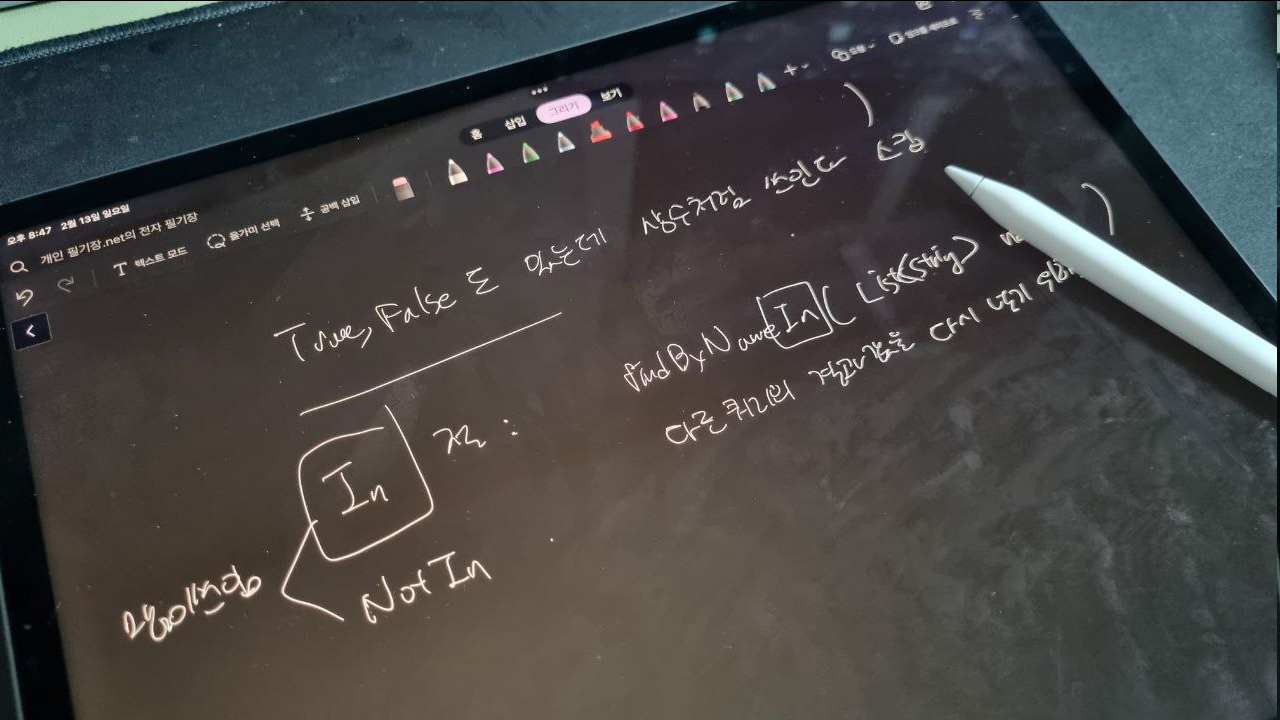 오후 8:47 2월 13일 일요일
개인 필기장.net의 전자 필기장
홈 삽입 그리기 보기
텍스트 모드 올가미 선택 공백 삽입
True, False 도 있는데 상수처럼 쓰인다 )
findByNameIn( List<String> )
다른 쿼리의 결과값을 다시 넣기
In 절 :
많이쓴다
Not In